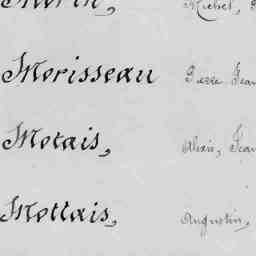 Morin, Michel,
Morisseau Pierre Jean
Motais, Alexis, Jean
Mottais, Augustin,